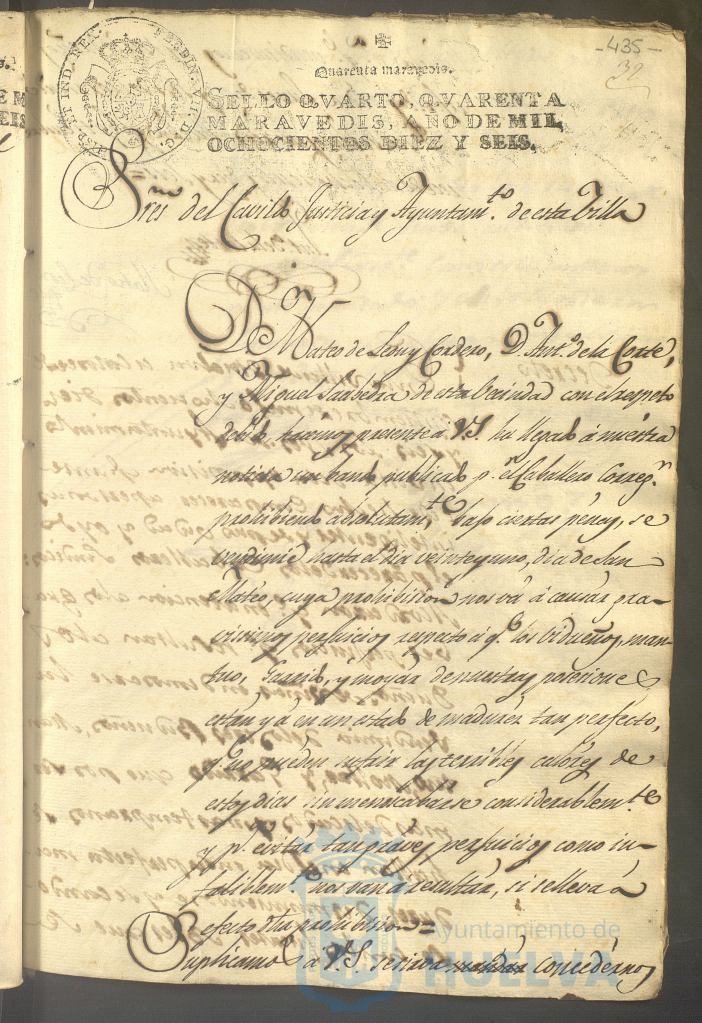 -435-
32
Quarenta maravedis.
SELLO QVARTO, QVARENTA
MARAVEDIS, AÑO DE MIL
OCHOCIENTOS DIEZ Y SEIS.
Sres del Cavildo Justicia y Ayuntam.to de esta Villa
Dn Mateo de Leon y Cordero, D. Ant.o de la Corte,
y Miguel Saabedra de esta becindad con el respeto
debido hacemos presente á V.S. ha llegado á nuestra
noticia un bando publicado p.r el Caballero Correg.r
prohibiendo absolutam.te bajo ciertas penas, se
vendimie hasta el dia veinte y uno, dia de San
Mateo, cuya prohibision nos vá á causar gra-
visimos perjuicios respecto á q.e los biduenos, man-
tuo, Garrido, y moyar de nuestras poseciones
están yá en un estado de madurez tan perfecto,
que no pueden sufrir las terribles calores de
estos dias sin menoscabarse considerablem.te
y p.a evitar tan graves perjuicios como in-
faliblem.te nos van á resultar, si se lleva á
efecto dha prohibision=
Suplicamos a V.S. se sirva concedernos
Ayuntamiento de
HUELVA